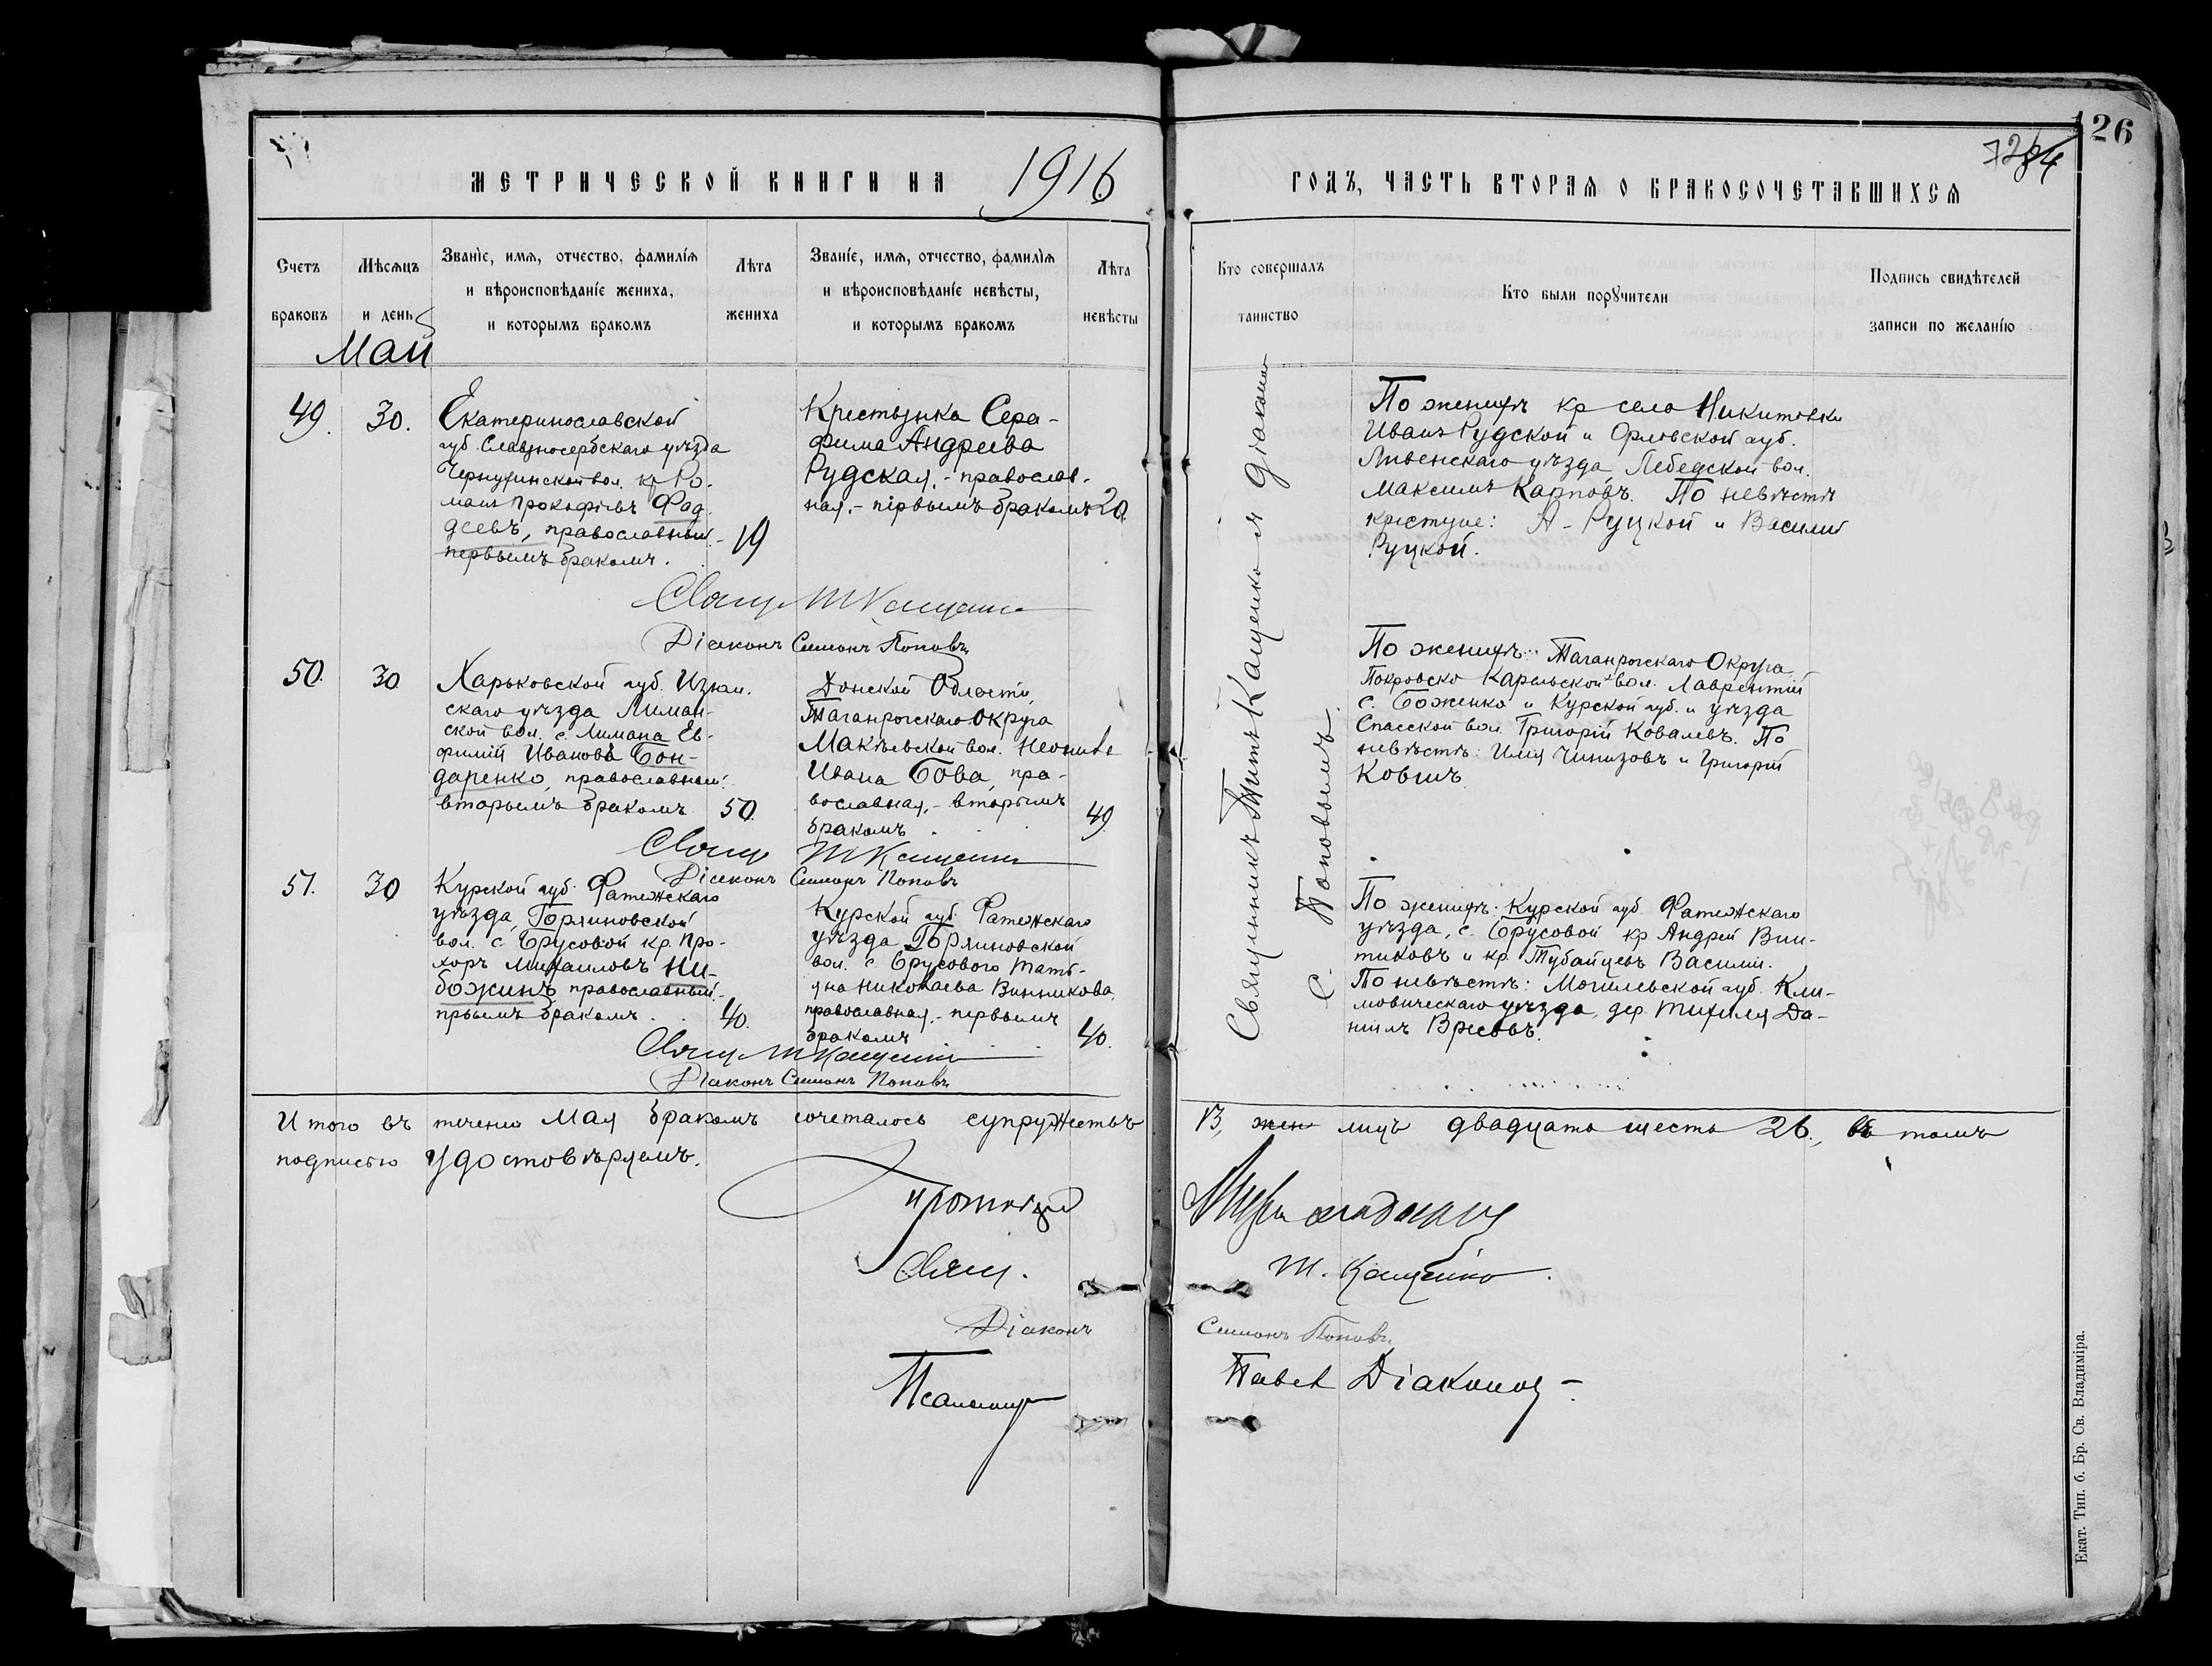 126
7284
МЕТРИЧЕСКОЙ КНИГИ НА 1916 ГОДЪ, ЧАСТЬ ВТОРАЯ О БРАКОСОЧЕТАВШИХСЯ
Счетъ
браковъ
Мѣсяцъ
и день
Званіе, имя, отчество, фамилія
и вѣроисповѣданіе жениха,
и которымъ бракомъ
Лѣта
жениха
Званіе, имя, отчество, фамилія
и вѣроисповѣданіе невѣсты,
и которымъ бракомъ
Лѣта
невѣсты
Кто совершалъ
таинство
Кто были поручители
Подпись свидѣтелей
записи по желанію
Май
49.
30.
Екатеринославской
губ. Славяносербскаго уѣзда
Чернухинской вол. кр Ро-
манъ Прокофіевъ Фад
деевъ, православный -
первымъ бракомъ.
19
Крестьянка Сера-
фима Андреева
Рудская, - православ-
ная, - первымъ бракомъ
20.
По женихѣ кр села Никитовки
Иванъ Рудской и Орловской губ.
Ливенскаго уѣзда, Лебедской вол.
Максимъ Карповъ. По невѣстѣ
крестьяне: А - Руцкой и Василий
Руцкой.
Свящ Т Кащенко
Діаконъ Симонъ Поповъ
50.
30
Харьковской губ. Изюм.
скаго уѣзда Лиман-
ской вол. с. Лимана Ев-
фимій Ивановъ Бон-
даренко, православный.
вторымъ бракомъ
50.
Донской Области,
Таганрогскаго Округа
Макѣевской вол.
Ивана Бова, пра-
вославная, - вторымъ
бракомъ
49.
По женихѣ: Таганрогскаго Округа
Покровско Карельской вол. Лаврентій
с. Боженко и Курской губ. и уѣзда
Спасской вол. Григорій Ковалевъ. По
невѣстѣ: Илія Чинизовъ и Григорій
Ковшъ
Свящ Т Кащенко
Діаконъ Симонъ Поповъ
51.
30
Курской губ. Фатежскаго
уѣзда, Горяиновской
вол. с. Брусовой кр. Про-
хоръ Михаиловъ Ни-
божинъ православный. -
првымъ бракомъ.
40.
Курской губ. Фатежскаго
уѣзда, Горяиновской
вол. с. Брусового Тать-
яна Николаева Винникова
православная, - первымъ
бракомъ
40.
По женихѣ: Курской губ. Фатежскаго
уѣзда, с. Брусовой кр Андрей Вин-
никовъ и кр. Тубайцевъ Василій.
По невѣстѣ: Могилевской губ. Кли-
мовическаго уѣзда, дер. Тихиля Да-
ніилъ
Свящ Т Кащенко
Діаконъ Симонъ Поповъ
Священникъ Титъ Кащенко съ діакономъ
С. Поповымъ.
Итого въ теченіи Мая бракомъ сочеталось супружествъ 13, жен лицъ двадцать шесть 26., въ томъ
подписью удостовѣряемъ.
Протоіерей
Свящ. Т. Кащенко.
Діаконъ Симонъ Поповъ
Псаломщ Павел Діаконов -
Екат. Тип. б. Бр. Св. Владиміра.